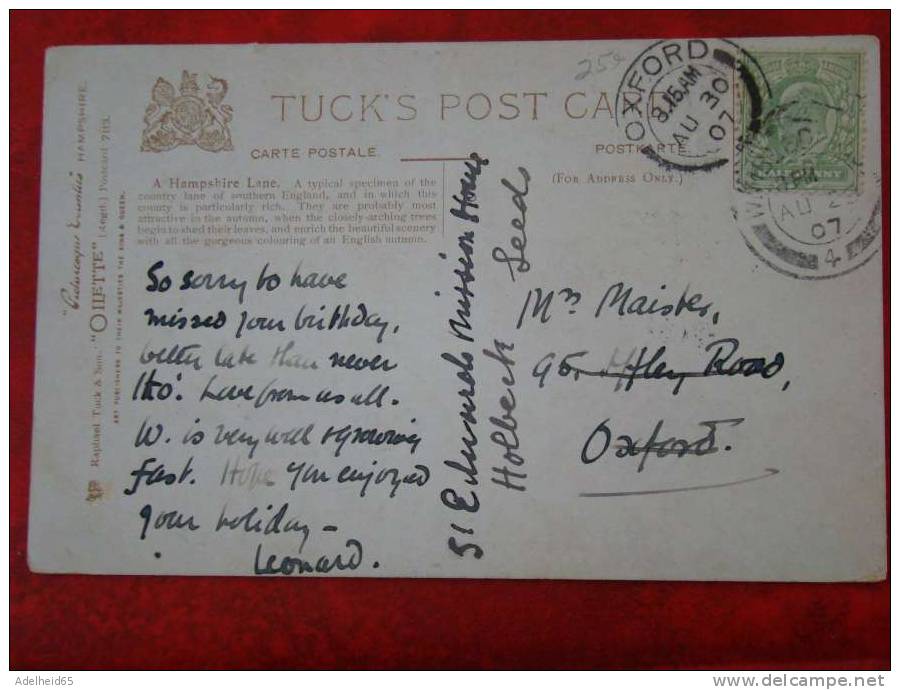 "Picturesque Counties" HAMPSHIRE.
Raphael Tuck & Sons' "OILETTE" [Regd.] Postcard 7113.
ART PUBLISHERS TO THEIR MAJESTIES THE KING & QUEEN.
TUCK'S POST CARD
CARTE POSTALE.
POSTKARTE
(FOR ADDRESS ONLY.)
A Hampshire Lane. A typical specimen of the
country lane of southern England, and in which this
county is particularly rich. They are probably most
attractive in the autumn, when the closely-arching trees
begin to shed their leaves, and enrich the beautiful scenery
with all the gorgeous colouring of an English autumn.
So sorry to have
missed your birthday,
better late than never
tho'. Love from us all.
W. is very well & growing
fast. Hope you enjoyed
your holiday –
Leonard.
51 Edwards Mission House
Holbeck Leeds
Mrs Maister,
95, Iffley Road,
Oxford.
25e
OXFORD
8.15AM
AU 30
07
HALFPENNY
PM
AU
07
4
Adelheid65
www.delcampe.net